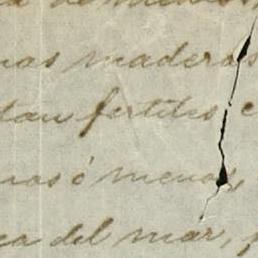 nas maderas
tan fertiles e
nas ó menos,
ca del mar, p